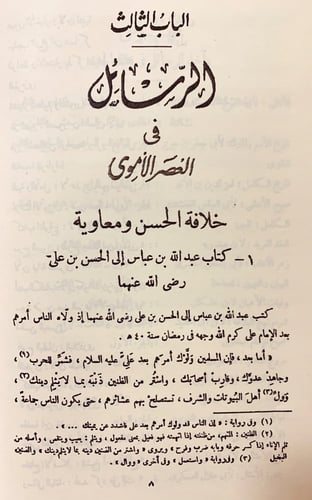 الباب الثالث
الرسائل
فى
العصر الأموى
خلافة الحسن ومعاوية
١ – كتاب عبد الله بن عباس إلى الحسن بن على
رضى الله عنهما
كتب عبد الله بن عباس إلى الحسن بن على رضى الله عنهما إذ ولاه الناس أمرهم
بعد الإمام على كرم الله وجهه فى رمضان سنة ٤٠ هـ .
« أما بعد ، فإن المسلمين ولّوك أمرهم بعد علىّ عليه السلام ، فشمّر للحرب (١)
وجاهد عدوّك ، وقارب أصحابك ، واشتر من الظّنين ذنبه بما لا يثلم دينك (٢) ،
وولّ (٣) أهل البيوتات والشرف ، تستصلح بهم عشائرهم ، حتى يكون الناس جماعة ،
(١) وفى رواية : « إن الناس قد ولوك أمرهم بعد على فاشدد عن يمينك ... » .
(٢) الظنين : المتهم ، من
(٣) وفى رواية « واستعمل » وفى أخرى « ووال » .
٨